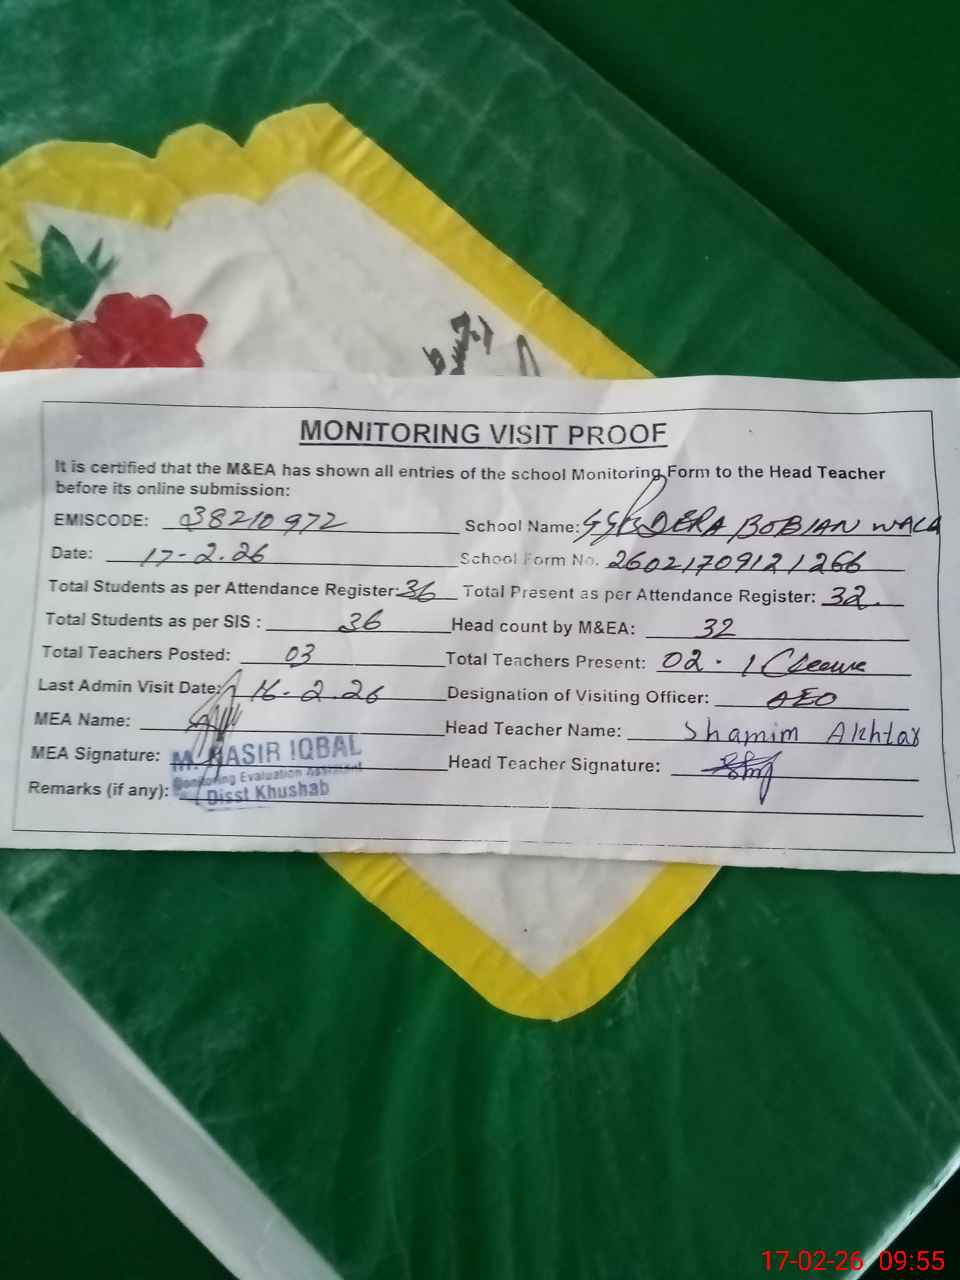 MONITORING VISIT PROOF
It is certified that the M&EA has shown all entries of the school Monitoring Form to the Head Teacher
before its online submission:
EMISCODE: 38210972 School Name: DERA BOBIAN WALA
Date: 17-2.26 School Form No. 26021709121266
Total Students as per Attendance Register: 36 Total Present as per Attendance Register: 32.
Total Students as per SIS : 36 Head count by M&EA: 32
Total Teachers Posted: 03 Total Teachers Present: 02. 1 Leave
Last Admin Visit Date: 16-2.26 Designation of Visiting Officer: AEO
MEA Name: Head Teacher Name: Shamim Akhtar
MEA Signature: M. NASIR IQBAL Head Teacher Signature:
Monitoring Evaluation Assistant
Remarks (if any): Disst Khushab
17-02-26 09:55